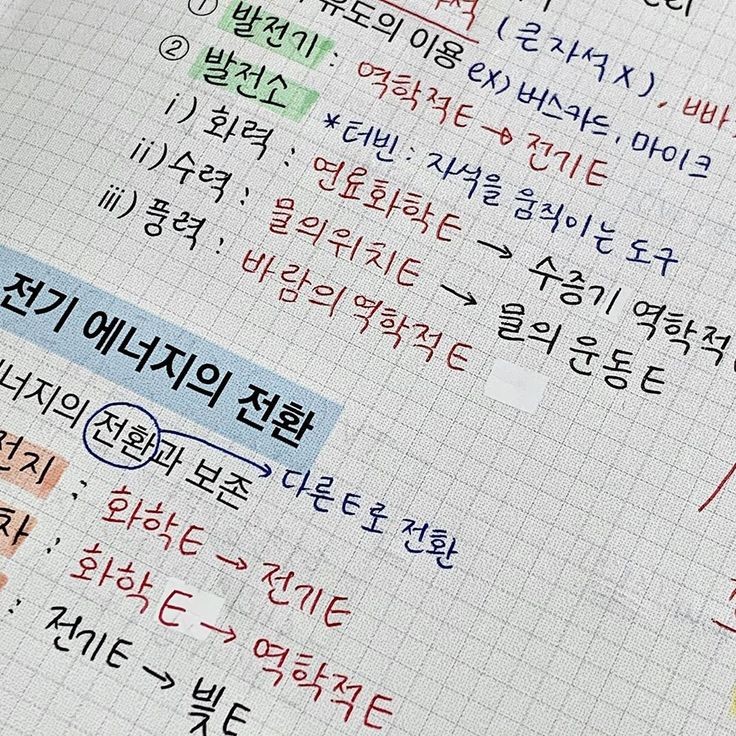 유도의 이용 ex) 버스카드, 마이크
① 발전기 : 역학적E → 전기E (큰 자석 X),
② 발전소 *터빈 : 자석을 움직이는 도구
i) 화력 : 연료화학E → 수증기 역학적
ii) 수력 : 물의위치E → 물의 운동E
iii) 풍력 : 바람의 역학적E
전기 에너지의 전환
너지의 전환과 보존 → 다른E로 전환
전지 : 화학E → 전기E
차 : 화학E → 역학적E
: 전기E → 빛E